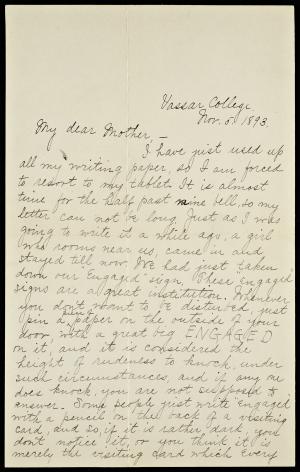 Vassar College,
Nov. 5. 1893.
My dear Mother, —
I have just used up
all my writing paper, so I am forced
to resort to my tablet. It is almost
time for the half past nine bell, so my
letter can not be long. Just as I was
going to write it a while ago, a girl
who rooms near us, came in and
stayed till now. We had just taken
down our "Engaged" sign. These "Engaged"
signs are a great institution. Whenever
you don't want to be disturbed, just
pin a paper on the outside of your
door with a great big ENGAGED
on it, and it is considered the
height of rudeness to knock, under
such circumstances, and if any one
does knock, you are not supposed to
answer. Some people just write "engaged"
with a pencil on the back of a visiting
card, and so, if it is rather dark, you
don't notice it, or you think it is
merely the visiting card which every